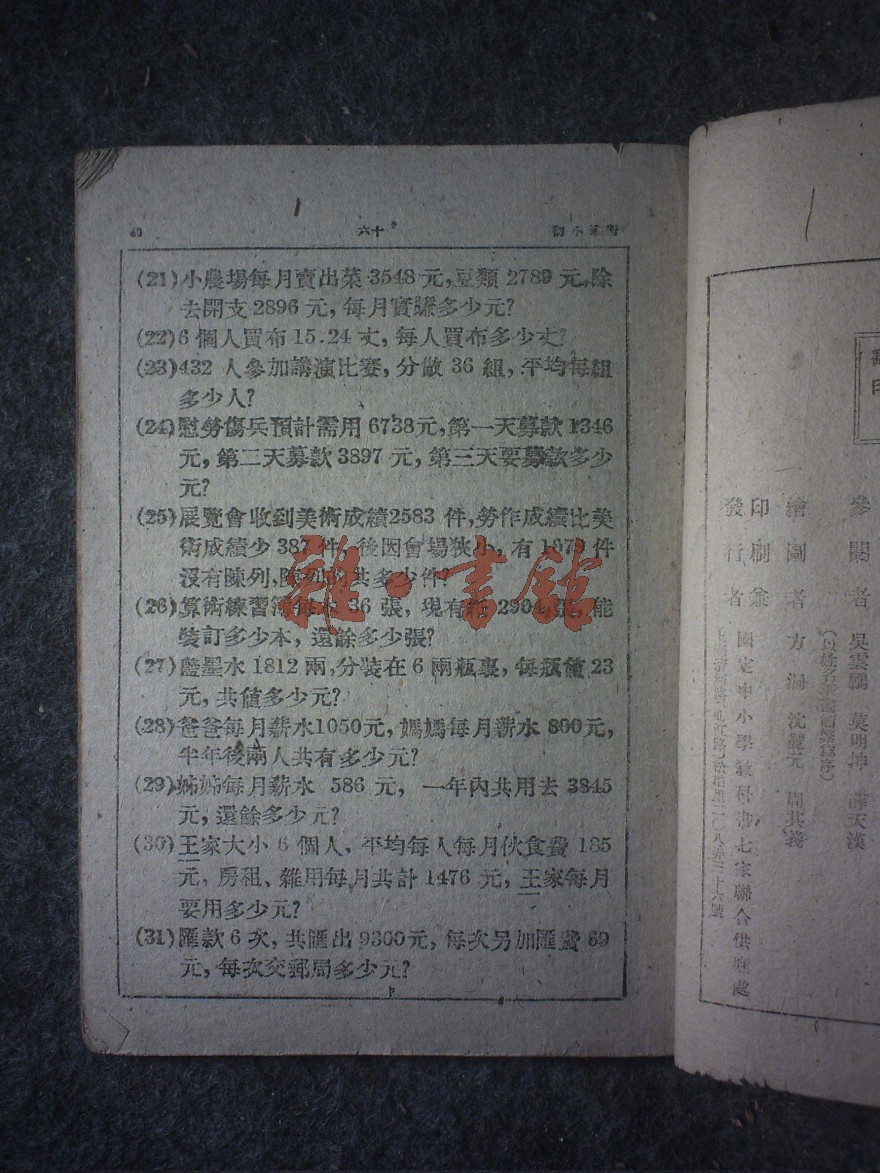 60 六十 初小算術
(21)小農場每月賣出菜3548元,豆類2789元,除
去開支2896元,每月實賺多少元?
(22)6個人買布15.24丈,每人買布多少丈?
(23)432人參加講演比賽,分做36組,平均每組
多少人?
(24)慰勞傷兵預計需用6738元,第一天募款1346
元,第二天募款3897元,第三天要募款多少
元?
(25)展覽會收到美術成績2583件,勞作成績比美
術成績少387件,後因會場狹小,有1675件
沒有陳列,陳列的共多少件?
(26)算術練習簿每本36張,現有紙2904張,能
裝訂多少本,還餘多少張?
(27)藍墨水1812兩,分裝在6兩瓶裏,每瓶值23
元,共值多少元?
(28)爸爸每月薪水1050元,媽媽每月薪水800元,
半年後兩人共有多少元?
(29)姊姊每月薪水586元,一年內共用去3845
元,還餘多少元?
(30)王家大小6個人,平均每人每月伙食費185
元,房租、雜用每月共計1476元,王家每月
要用多少元?
(31)匯款6次,共匯出9300元,每次另加匯費69
元,每次交郵局多少元?
雜·書館
翻印
參閱者 吳雲鵬 莫明坤 薛天漢
繪圖者 方洞 沈麓元 周其義
印刷兼
發行者 國定中小學教科書七家聯合供應處